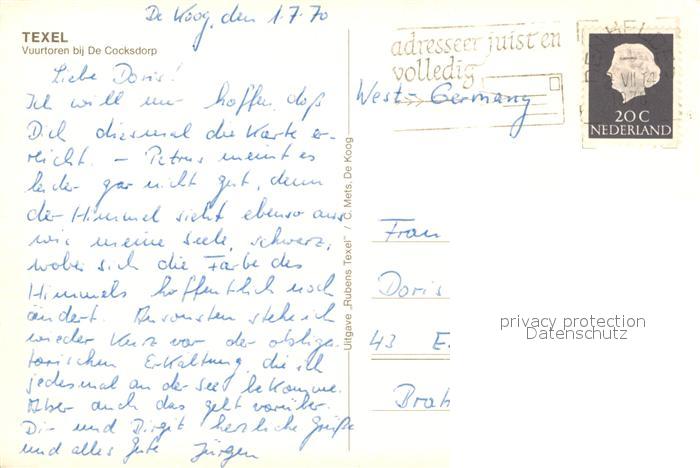 De Koog, den 1.7.70
TEXEL
Vuurtoren bij De Cocksdorp
Liebe Doris!
Ich will nur hoffen, daß
Dich diesmal die Karte er-
reicht. – Petrus meint es
leider gar nicht gut, denn
der Himmel sieht ebenso aus
wie meine Seele, schwarz,
wobei sich die Farbe des
Himmels hoffentlich noch
ändert. Ansonsten stehe ich
wieder kurz vor der obliga-
torischen Erkältung, die ich
jedesmal an der See bekomme.
Aber auch das geht vorüber.
Dir und Birgit herzliche Grüße
und alles Gute Jürgen
Uitgave „Rubens Texel" / C. Mets, De Koog
adresseer juist en
volledig
West-Germany
VII
20 C
NEDERLAND
Frau
Doris
43 E.
Brah
privacy protection
Datenschutz